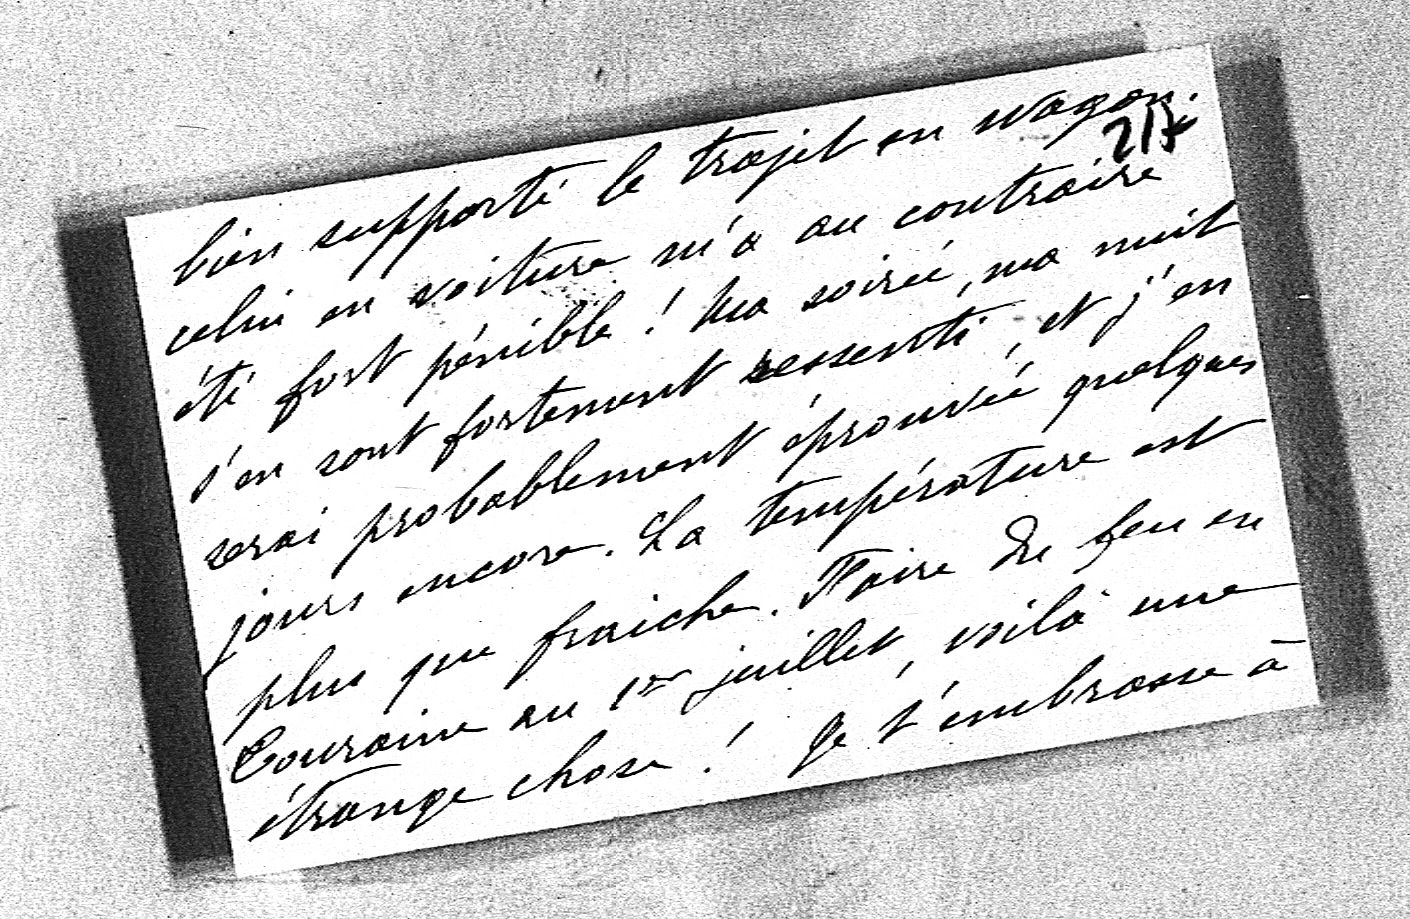 bien supporté le trajet en wagon.
217
celui en voiture m'a au contraire
été fort pénible ! Ma soirée, ma nuit
s'en sont fortement ressenti, et j'en
serai probablement éprouvée quelques
jours encore. La température est
plus que fraiche. Faire du feu en
Touraine au 1er juillet, voilà une
étrange chose ! Je t'embrasse à